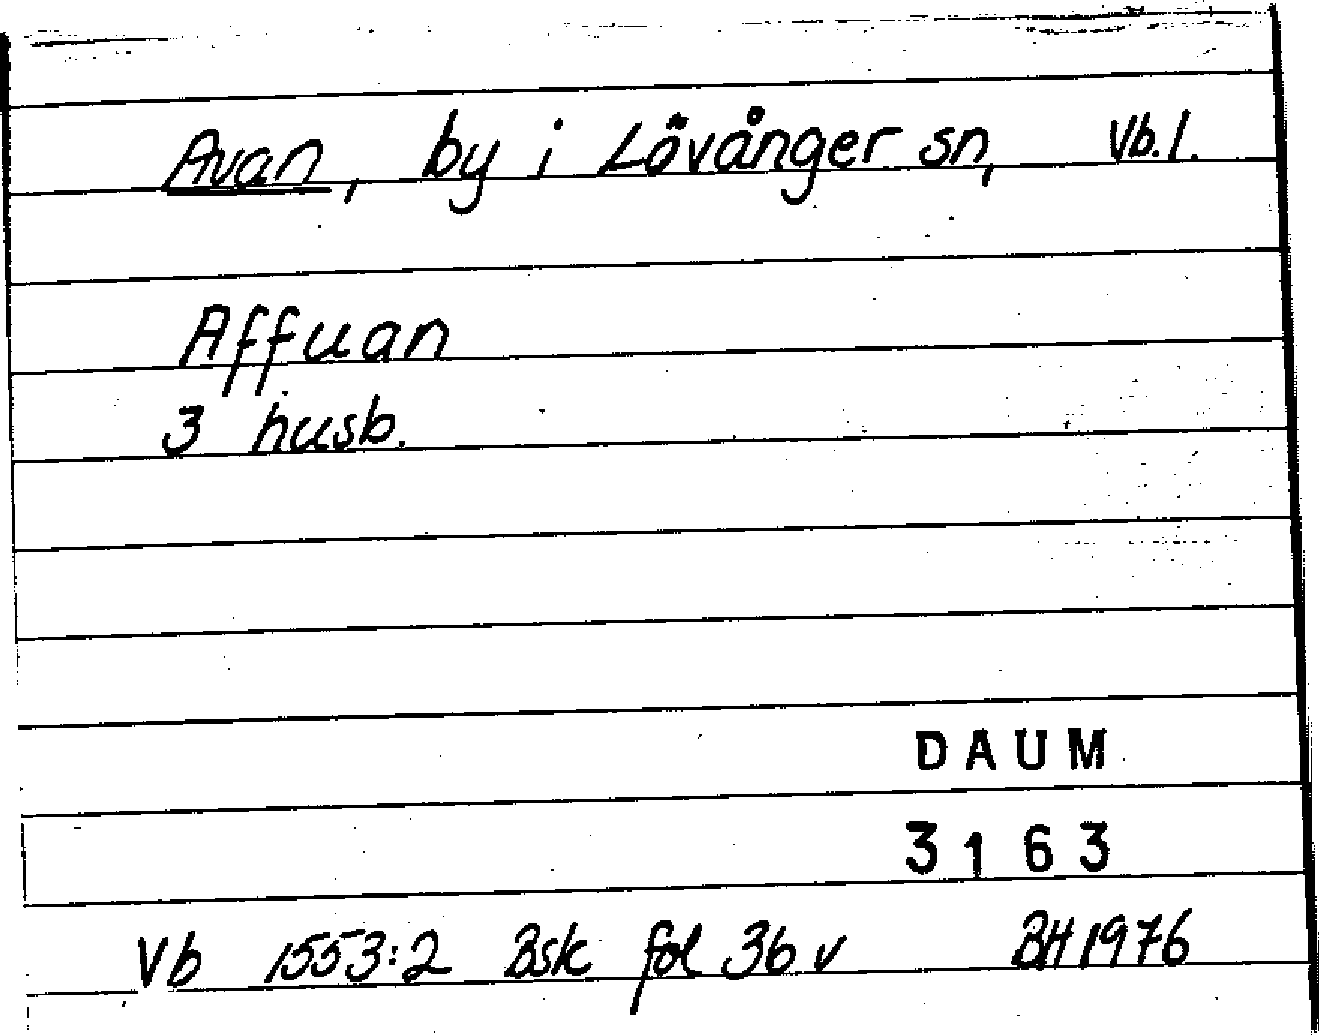 Avan, by i Lövånger sn, Vb.l.
Affuan
3 husb.
DAUM
3163
Vb 1553:2 Bsk fol 36 v BH 1976